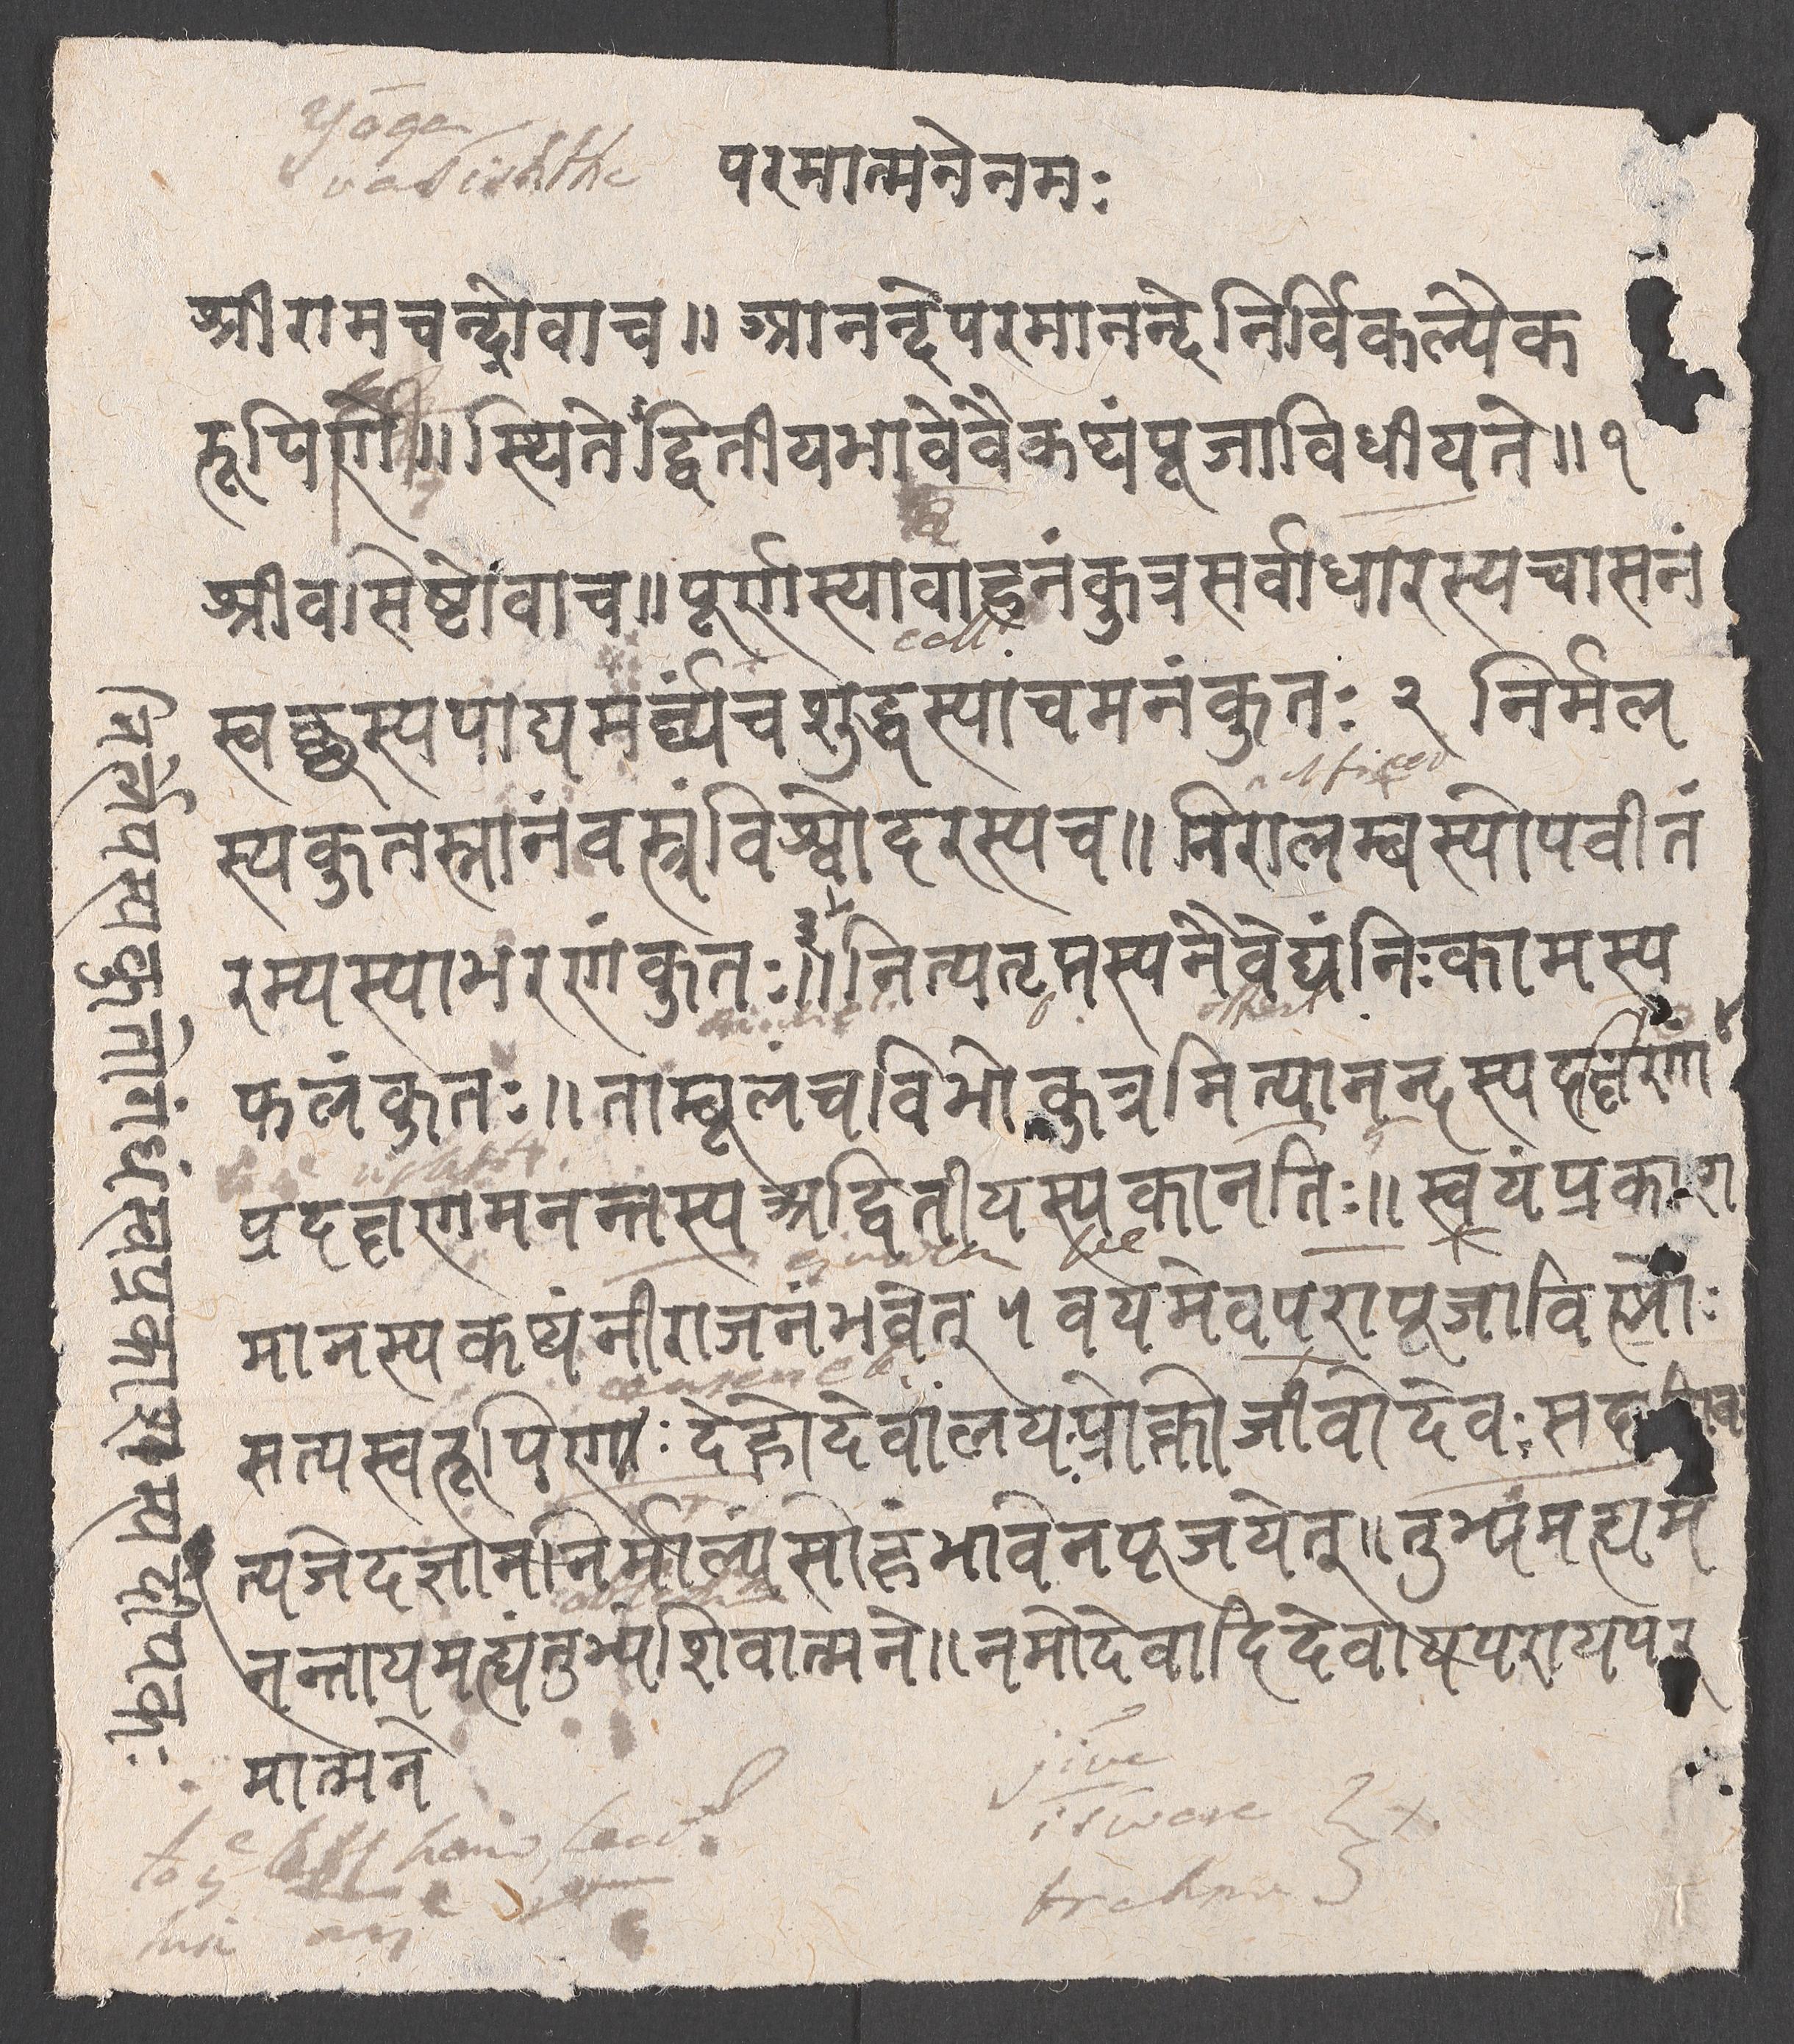 Yoga
vasishtha
परमात्मनेनमः
श्रीरामचन्द्रोवाच॥ आनन्देपरमानन्देनिर्विकल्पैक
रूपिणि॥स्थितेद्वितीयभावेवैकथंपूजाविधीयते॥१
श्रीवसिष्टोवाच॥पूर्णस्यावाहनंकुत्रसर्वाधारस्यचासनं
call
स्वछस्यपाद्यमर्घ्यंचशुद्धस्याचमनंकुतः २ निर्मल
स्यकुतस्नानंवस्त्रंविश्वोदरस्यच॥ निरालम्बस्योपवीतं
रम्यस्याभरणंकुतः॥३नित्यतृप्तस्यनैवेद्यंनिःकामस्य
फलंकुतः॥ ताम्बूलंचविभोकुत्रनित्यानन्दस्यदक्षिणा४
प्रदक्षणमनन्तस्यअद्वितीयस्यकानतिः॥ स्वयंप्रकाश
मानस्यकथंनीराजनंभवेत् ५ वयमेवपरापूजाविष्णोः
सत्यस्वरूपिणाः देहोदेवालयःप्रोक्तोजीवोदेवः
त्यजेदज्ञाननिर्माल्यंसोहंभावेनपूजयेत्॥तुभ्यंमह्यम
नन्तायमह्यंतुभ्यंशिवात्मने॥नमोदेवादिदेवायपरायपर
मात्मने
निर्लेपस्यकुतोगंधंस्वप्रकाशस्यदीपकः
jive
isware
brahma
left hand